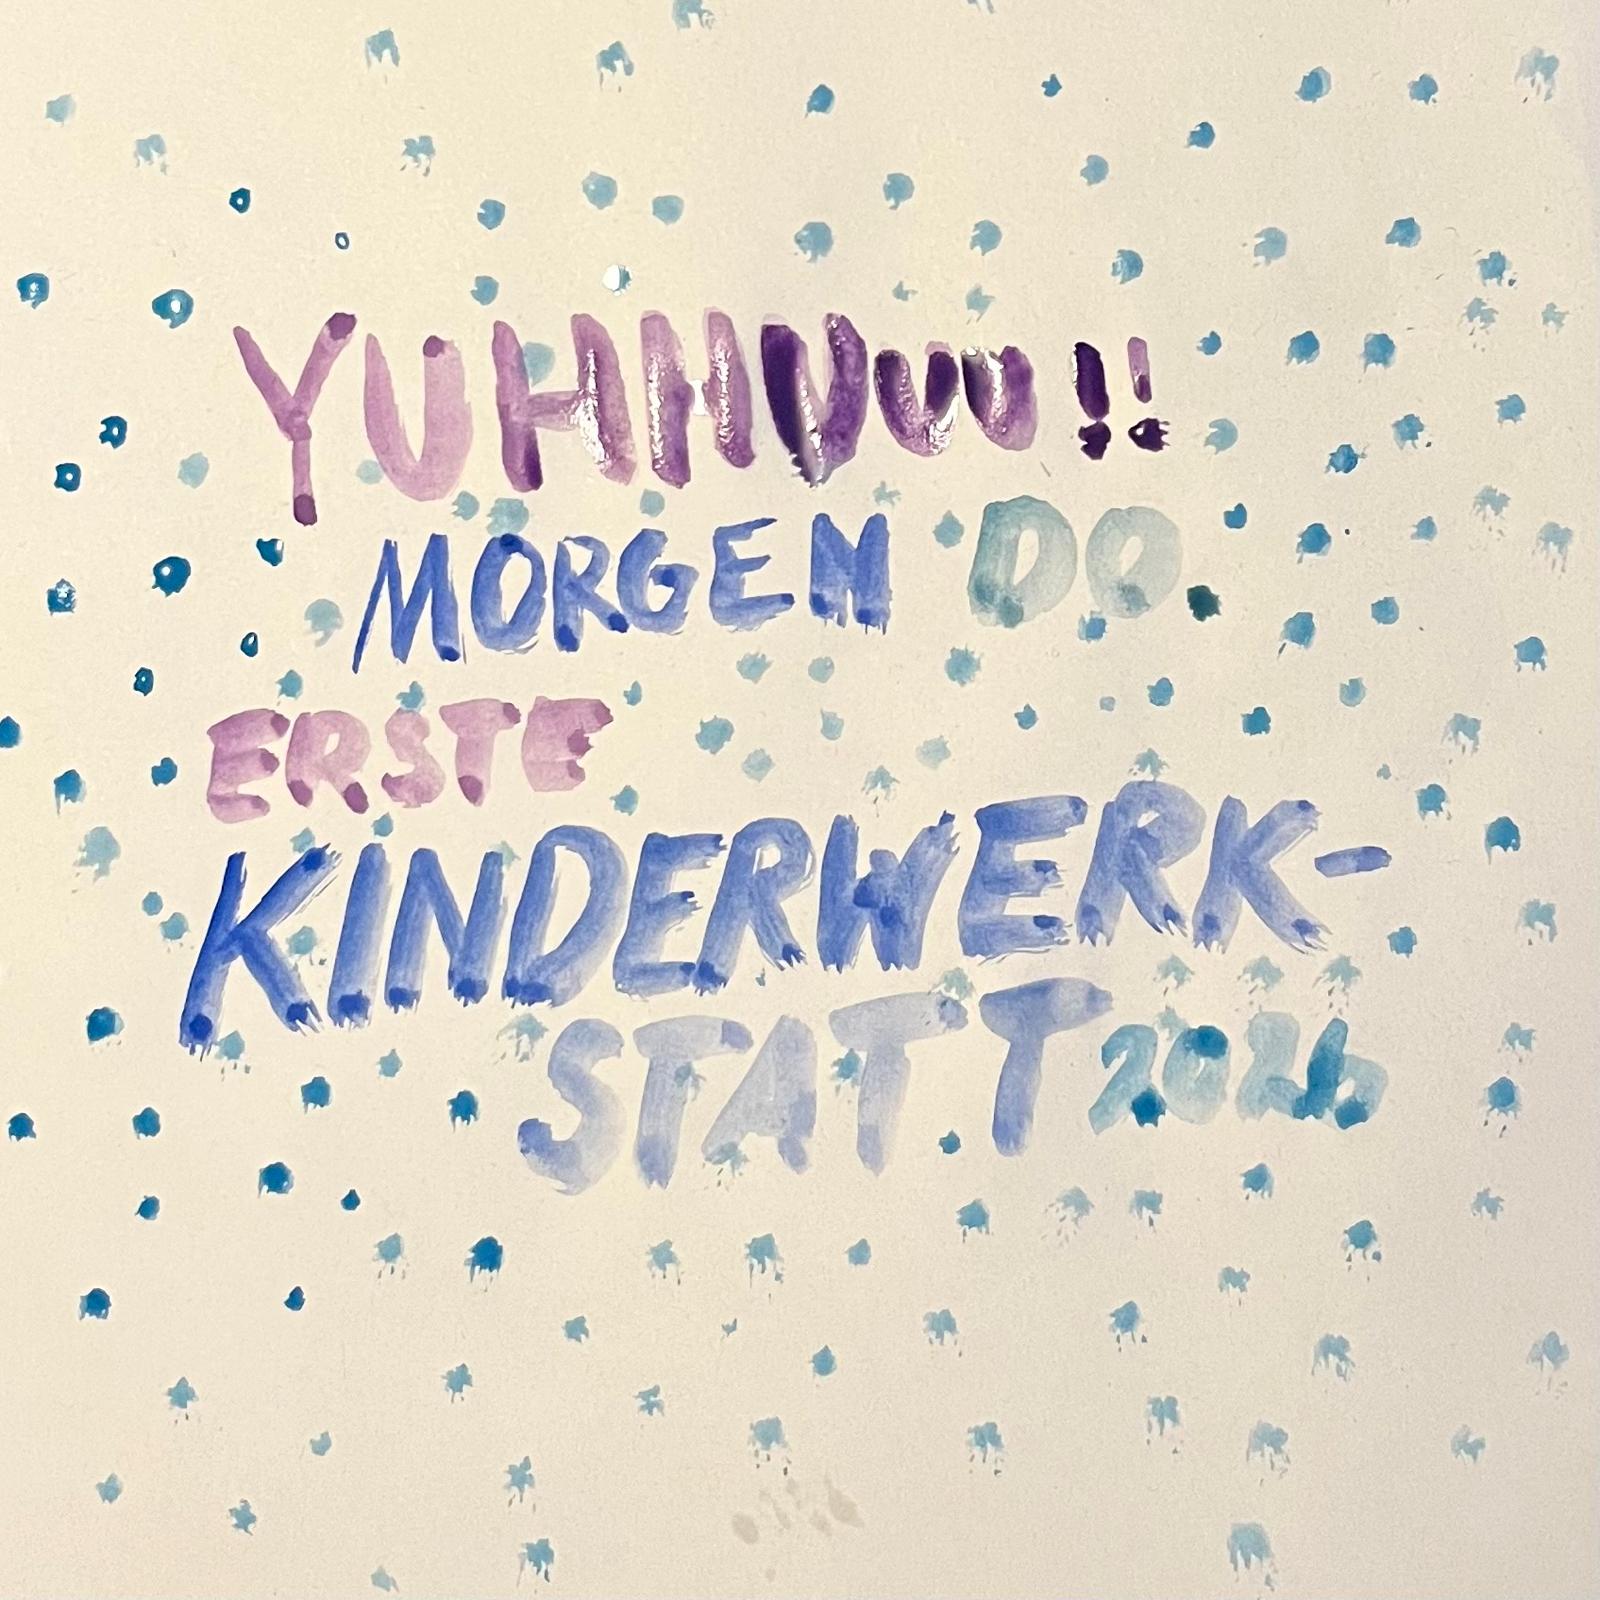 YUHHUuu!!
MORGEN DO.
ERSTE
KINDERWERK-
STATT 2026